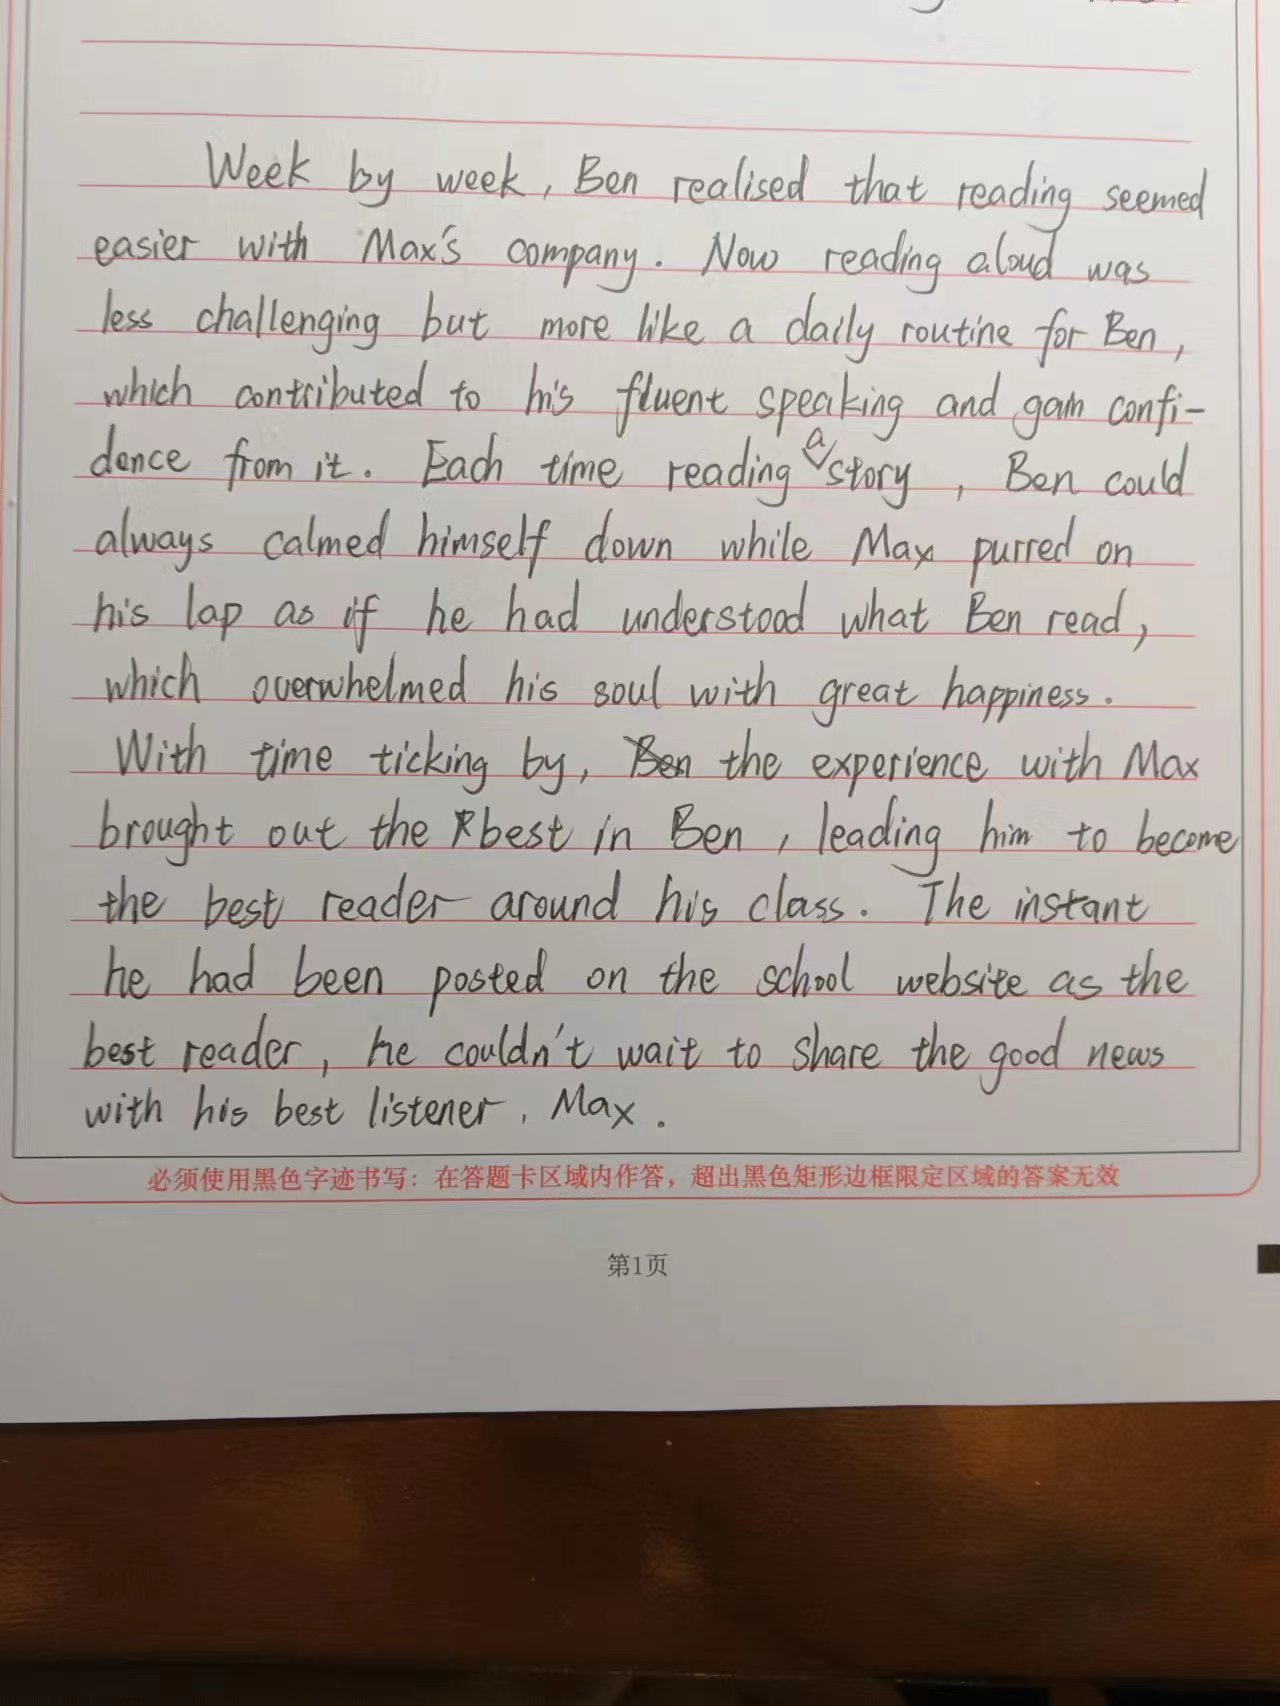 Week by week, Ben realised that reading seemed
easier with Max's company. Now reading aloud was
less challenging but more like a daily routine for Ben,
which contributed to his fluent speaking and gain confi-
dence from it. Each time reading a story, Ben could
always calmed himself down while Max purred on
his lap as if he had understood what Ben read,
which overwhelmed his soul with great happiness.
With time ticking by, the experience with Max
brought out the best in Ben, leading him to become
the best reader around his class. The instant
he had been posted on the school website as the
best reader, he couldn't wait to share the good news
with his best listener, Max.
必须使用黑色字迹书写：在答题卡区域内作答，超出黑色矩形边框限定区域的答案无效
第1页